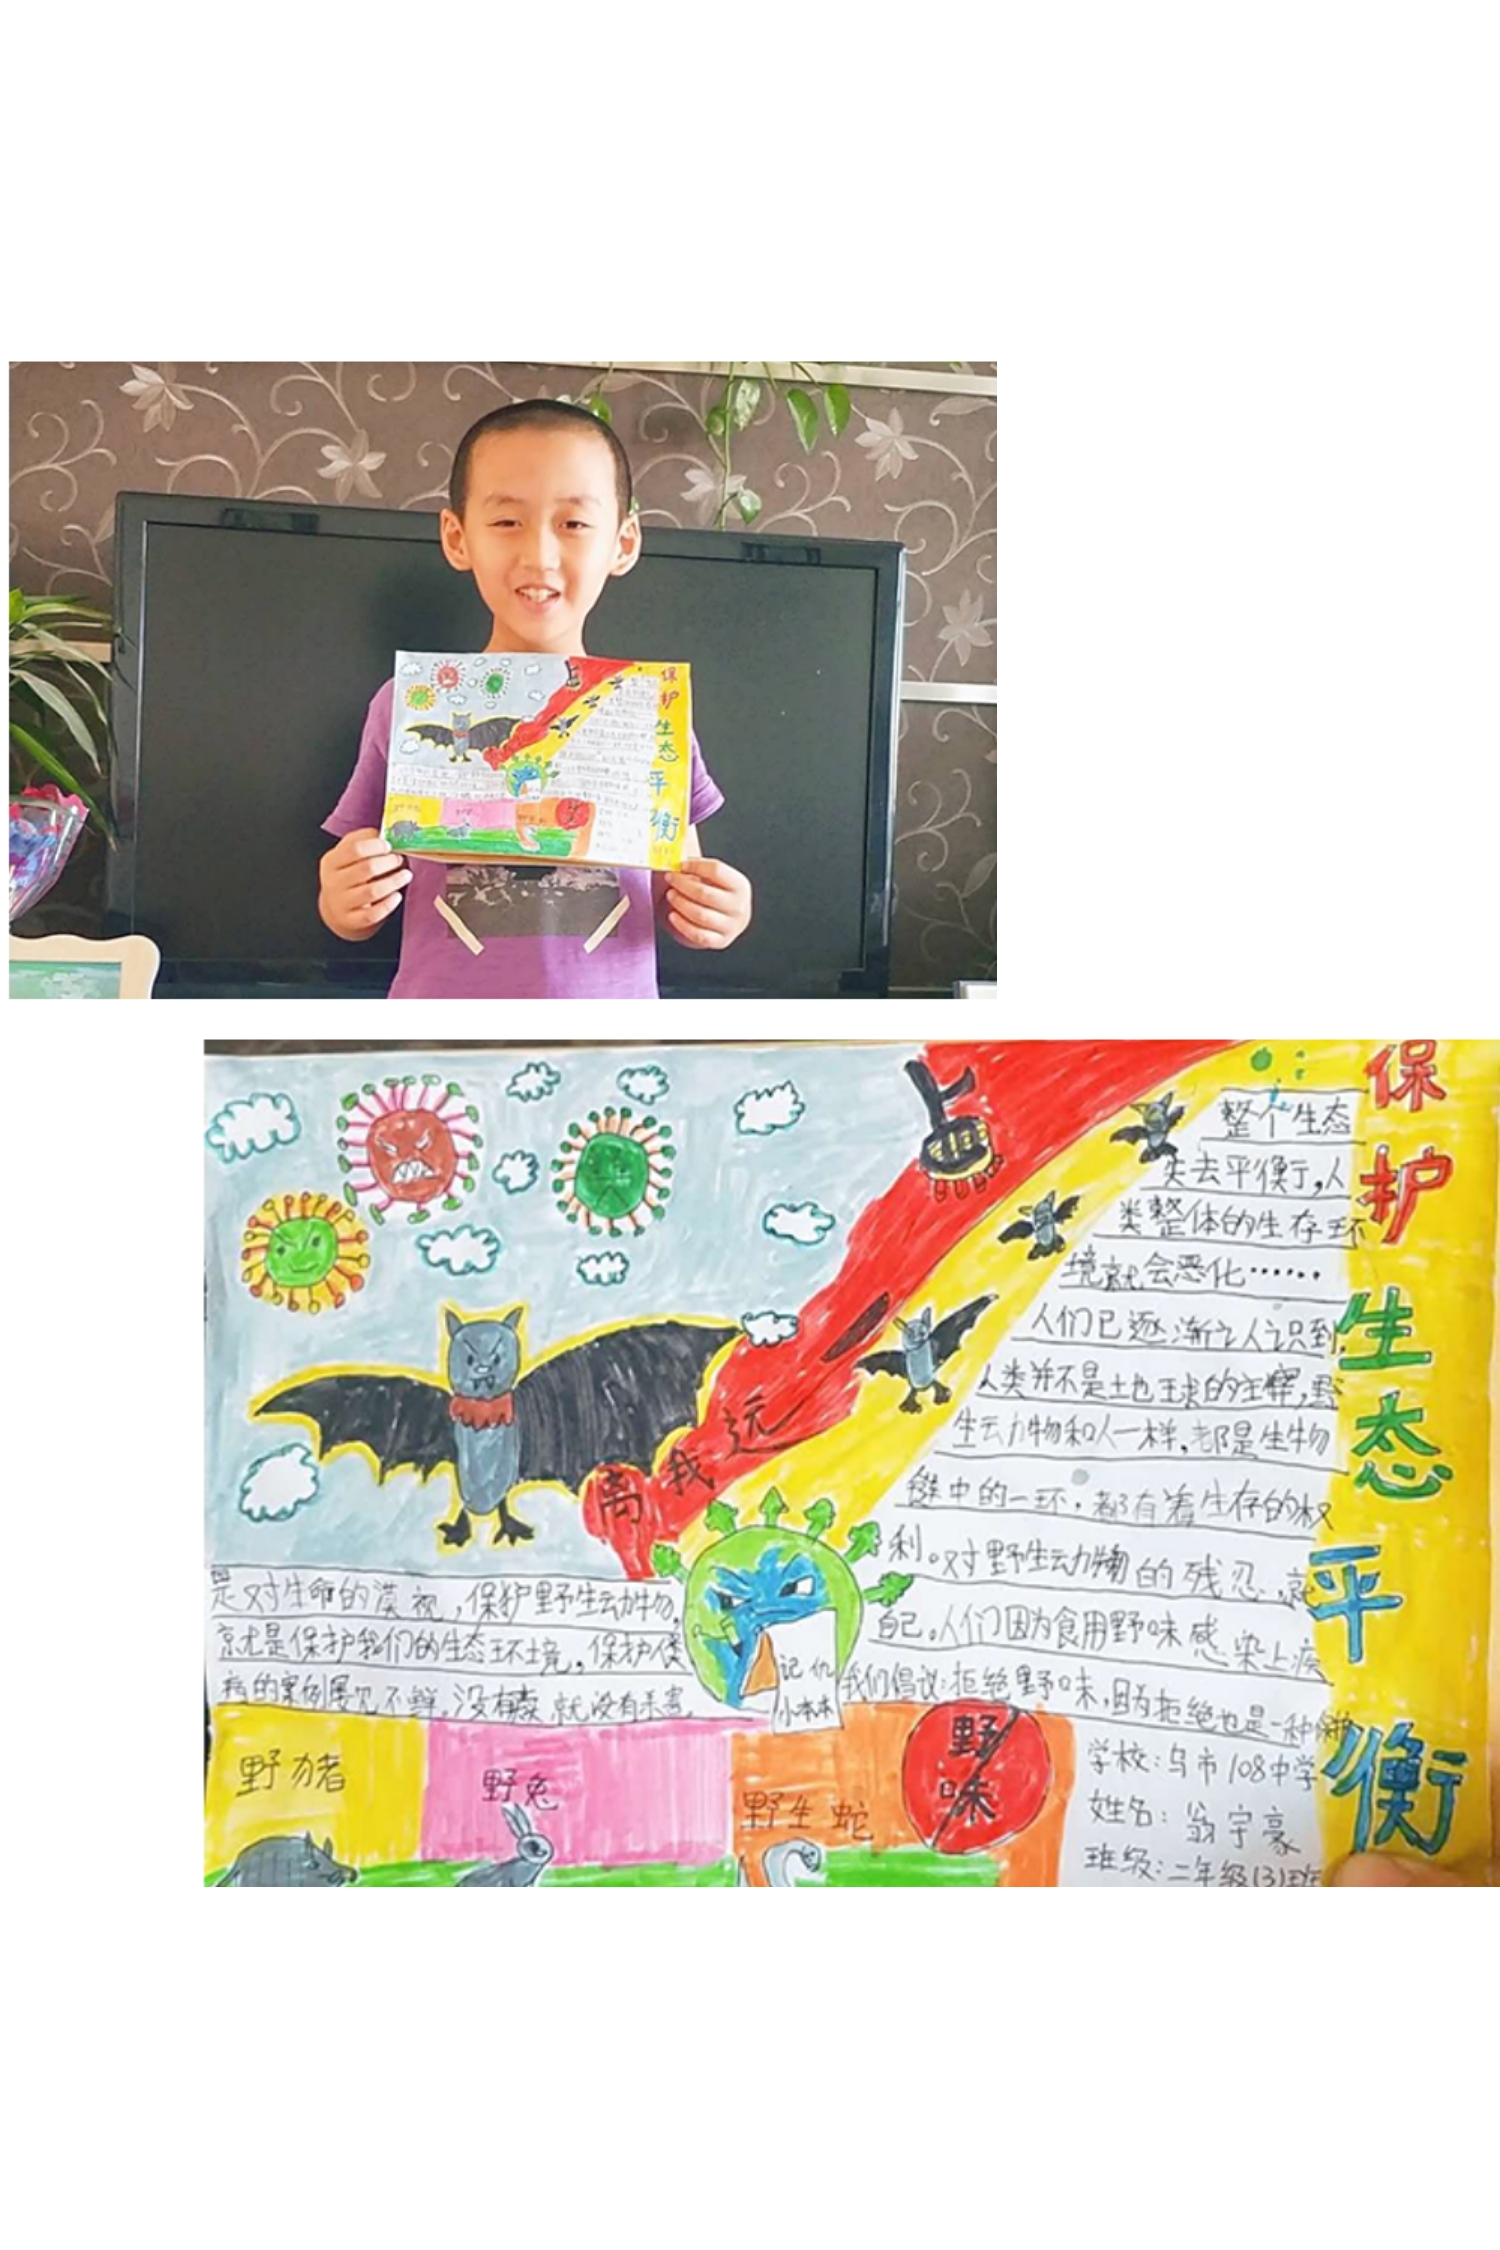 保护生态平衡
整个生态
失去平衡了,人
类整体的生存环
境就会恶化……
人们已逐渐认识到,
人类并不是地球的主宰,野
生动物和人一样,都是生物
链中的一环,都有着生存的权
利。对野生动物的残忍,就
是对生命的漠视,保护野生动物,
就是保护我们的生态环境,保护人类
自己。人们因为食用野味感染上疾
病的案例屡见不鲜。没有 就没有杀害
我们倡议:拒绝野味,因为拒绝也是一种
离我远
记仇
小本本
野猪
野兔
野生蛇
野味
学校:乌市108中学
姓名:翁宇豪
班级:二年级(3)班